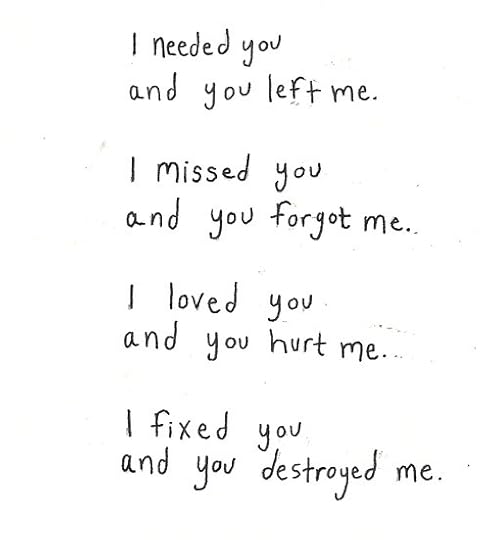 I needed you
and you left me.
I missed you
and you forgot me..
I loved you
and you hurt me...
I fixed you
and you destroyed me.